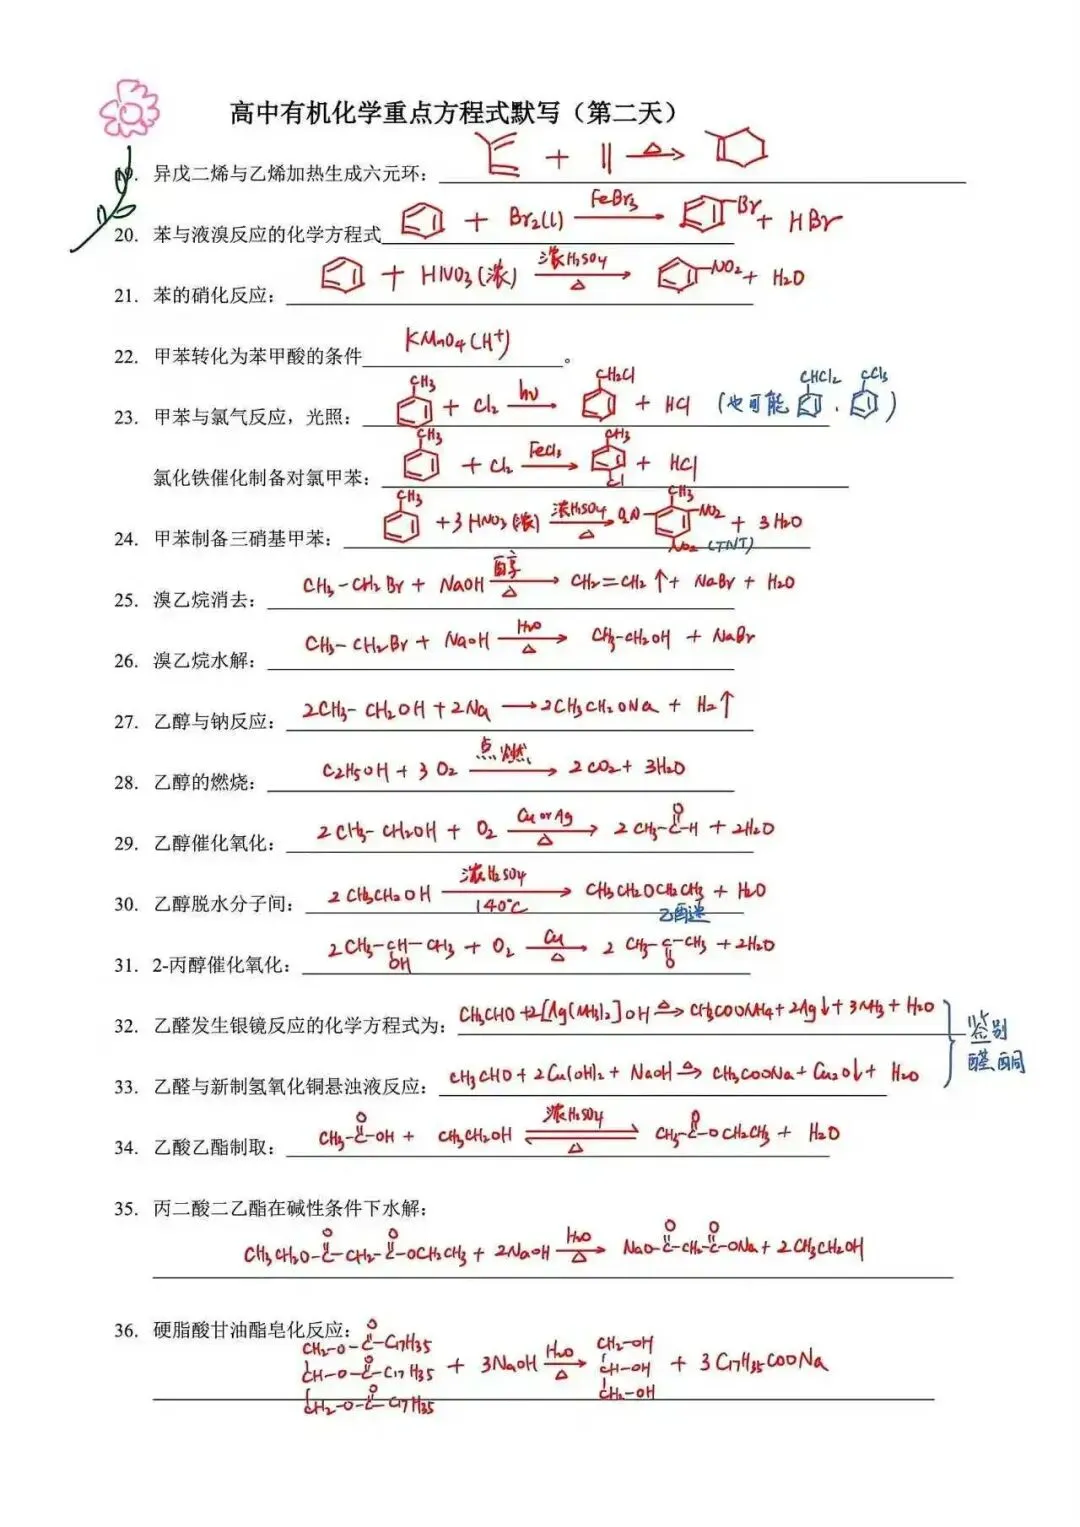 高中有机化学重点方程式默写（第二天）
19. 异戊二烯与乙烯加热生成六元环： + △
20. 苯与液溴反应的化学方程式 + Br2(l) FeBr3 Br + HBr
21. 苯的硝化反应： + HNO3(浓) 浓H2SO4 △ NO2 + H2O
22. 甲苯转化为苯甲酸的条件 KMnO4(H+) 。
23. 甲苯与氯气反应，光照： CH3 + Cl2 hν CH2Cl + HCl (也可能 CHCl2 、 CCl3 )
氯化铁催化制备对氯甲苯： CH3 + Cl2 FeCl3 CH3 Cl + HCl
24. 甲苯制备三硝基甲苯： CH3 + 3HNO3(浓) 浓H2SO4 △ O2N CH3 NO2 NO2 (TNT) + 3H2O
25. 溴乙烷消去： CH3-CH2Br + NaOH 醇 △ → CH2=CH2↑ + NaBr + H2O
26. 溴乙烷水解： CH3-CH2Br + NaOH H2O △ → CH3-CH2OH + NaBr
27. 乙醇与钠反应： 2CH3-CH2OH + 2Na → 2CH3CH2ONa + H2↑
28. 乙醇的燃烧： C2H5OH + 3O2 点燃 → 2CO2 + 3H2O
29. 乙醇催化氧化： 2CH3-CH2OH + O2 Cu or Ag △ → 2CH3-C-H O + 2H2O
30. 乙醇脱水分子间： 2CH3CH2OH 浓H2SO4 140℃ → CH3CH2OCH2CH3 + H2O
乙醚
31. 2-丙醇催化氧化： 2CH3-CH-CH3 OH + O2 Cu △ → 2CH3-C-CH3 O + 2H2O
32. 乙醛发生银镜反应的化学方程式为： CH3CHO+2[Ag(NH3)2]OH △ → CH3COONH4+2Ag↓+3NH3+H2O
鉴别
醛酮
33. 乙醛与新制氢氧化铜悬浊液反应： CH3CHO + 2Cu(OH)2 + NaOH △ → CH3COONa + Cu2O↓ + H2O
34. 乙酸乙酯制取： CH3-C-OH O + CH3CH2OH 浓H2SO4 △ CH3-C-OCH2CH3 O + H2O
35. 丙二酸二乙酯在碱性条件下水解：
CH3CH2O-C-CH2-C-OCH2CH3 O O + 2NaOH H2O △ → NaO-C-CH2-C-ONa O O + 2CH3CH2OH
36. 硬脂酸甘油酯皂化反应：
CH2-O-C-C17H35 O
CH-O-C-C17H35 O + 3NaOH H2O △ → CH2-OH CH-OH CH2-OH + 3C17H35COONa
CH2-O-C-C17H35 O